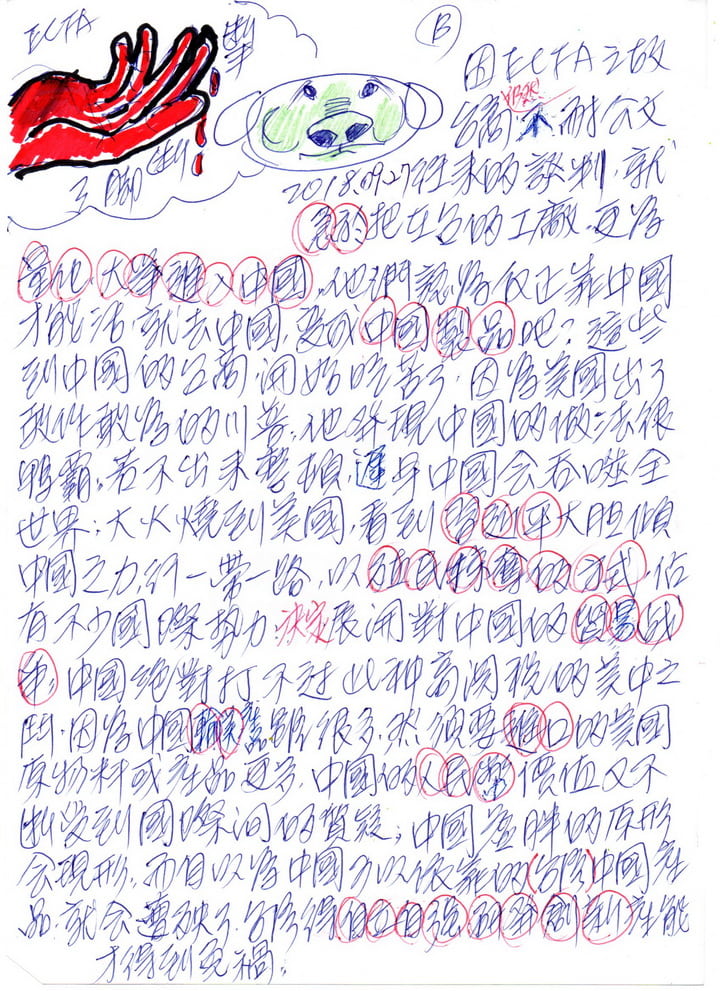 ECFA
B
因ECFA之故
台商不耐公文
2018.09.27往來的談判,就
急於把在台的工廠,更為
大筆進入中國,他們認為仅止靠中國
才能活,就去中國,變成中國製品吧?這些
到中國的台商,開始吃苦了,因為美國出了
敢作敢為的川普,他發現中國的做法很
鴨霸,若不出來整頓,遲早中國会吞噬全
世界;大火燒到美國,看到習近平大胆傾
中國之力,行一帶一路,以的方式,佔
有不少國際勢力決定展開對中國的貿易战
争,中國絕對打不过此种高関税的美中之
鬥,因為中國輸美產品雖很多,然須要進口的美國
原物料或產品更多,中國的人民幣價值又不
斷受到國際间的質疑;中國虛胖的原形
会現形,而自以為中國可以依靠的(台灣)中國產
品,就会遭殃了,台灣得自立自強研發創新產能
才得到免禍.